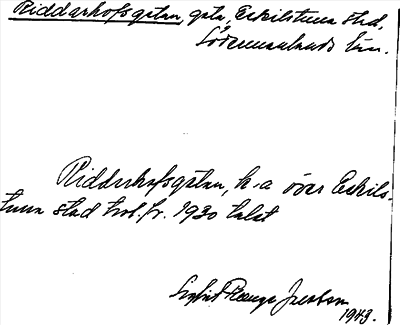 Riddarhofsgatan, gata, Eskilstuna stad,
Södermanlands län.
Riddarhofsgatan, k-a över Eskils-
tuna stad trol. fr. 1930 talet
1943.